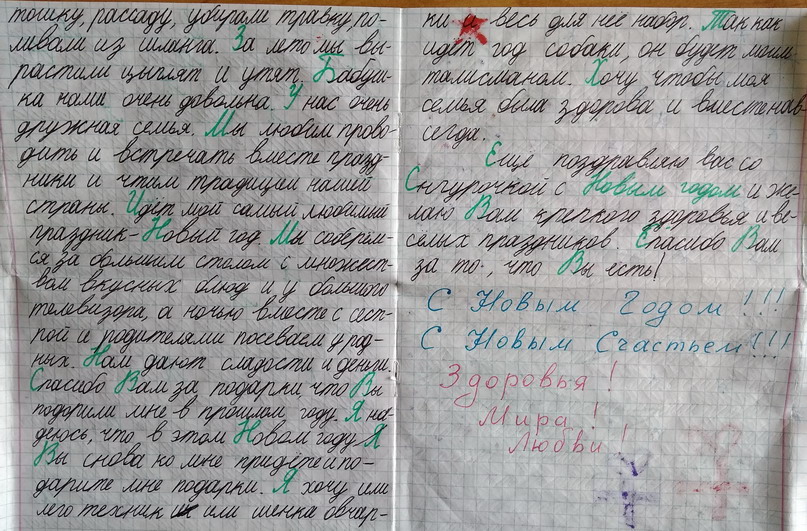 тошку, рассаду, убирали травку, по-
ливали из шланга. За лето мы вы-
растили цыплят и утят. Бабуш-
ка нами очень довольна. У нас очень
дружная семья. Мы любим прово-
дить и встречать вместе празд-
ники и чтим традиции нашей
страны. Идёт мой самый любимый
праздник - Новый год. Мы соберём-
ся за большим столом с множест-
вом вкусных блюд и у большого
телевизора, а ночью вместе с сест-
рой и родителями посеваем у род-
ных. Нам дают сладости и деньги.
Спасибо Вам за подарки, что Вы
подарили мне в прошлом году. Я на-
деюсь, что в этом Новом году Я
Вы снова ко мне придёте и по-
дарите мне подарки. Я хочу, или
лего техник или щенка овчар-
ки и весь для неё набор. Так как
идёт год собаки, он будет моим
талисманом. Хочу чтобы моя
семья была здорова и вместе нав-
сегда.
Ещё поздравляю вас со
Снгурочкой с Новым годом и же-
лаю Вам крепкого здоровья и ве-
сёлых праздников. Спасибо Вам
за то, что Вы есть!
С Новым Годом!!!
С Новым Счастьем!!!
Здоровья!
Мира!
Любви!